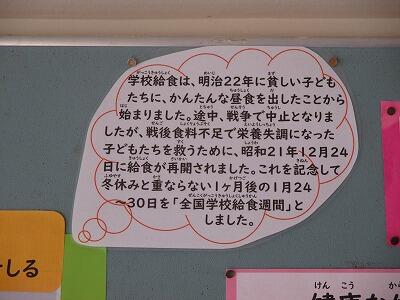 学校給食は、明治22年に貧しい子ども
たちに、かんたんな昼食を出したことから
始まりました。途中、戦争で中止となりま
したが、戦後食料不足で栄養失調になった
子どもたちを救うために、昭和21年12月24
日に給食が再開されました。これを記念して
冬休みと重ならない1ケ月後の1月24
～30日を「全国学校給食週間」と
しました。
しる
けん こう か